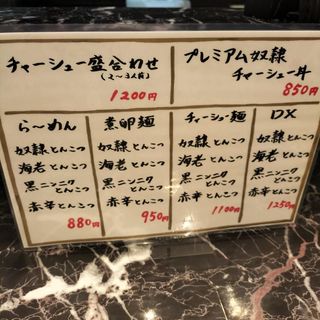 チャーシュー盛合わせ
(2〜3人前)
1200円
プレミアム奴隷
チャーシュー丼
850円
ら〜めん
奴隷とんこつ
海老とんこつ
黒ニンニクとんこつ
赤辛とんこつ
880円
煮卵麺
奴隷とんこつ
海老とんこつ
黒ニンニクとんこつ
赤辛とんこつ
950円
チャーシュー麺
奴隷とんこつ
海老とんこつ
黒ニンニク
とんこつ
赤辛とんこつ
1100円
DX
奴隷とんこつ
海老とんこつ
黒ニンニク
とんこつ
赤辛とんこつ
1250円